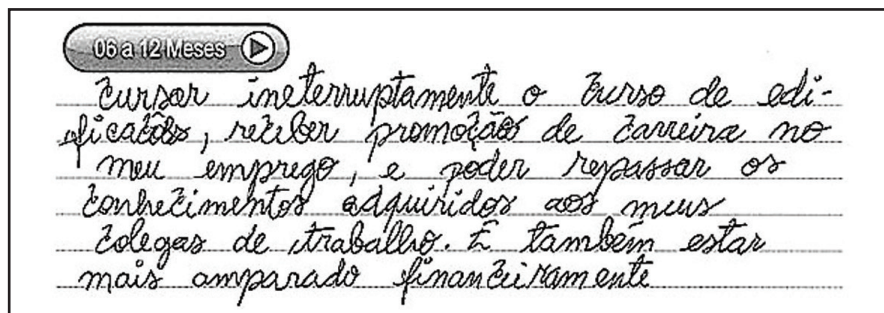 06 a 12 Meses
Cursar ineterruptamente o Curso de edi-
ficacões, receber promoção de Carreira no
meu emprego, e poder repassar os
Conhecimentos adquiridos aos meus
Colegas de trabalho. E também estar
mais amparado financeiramente